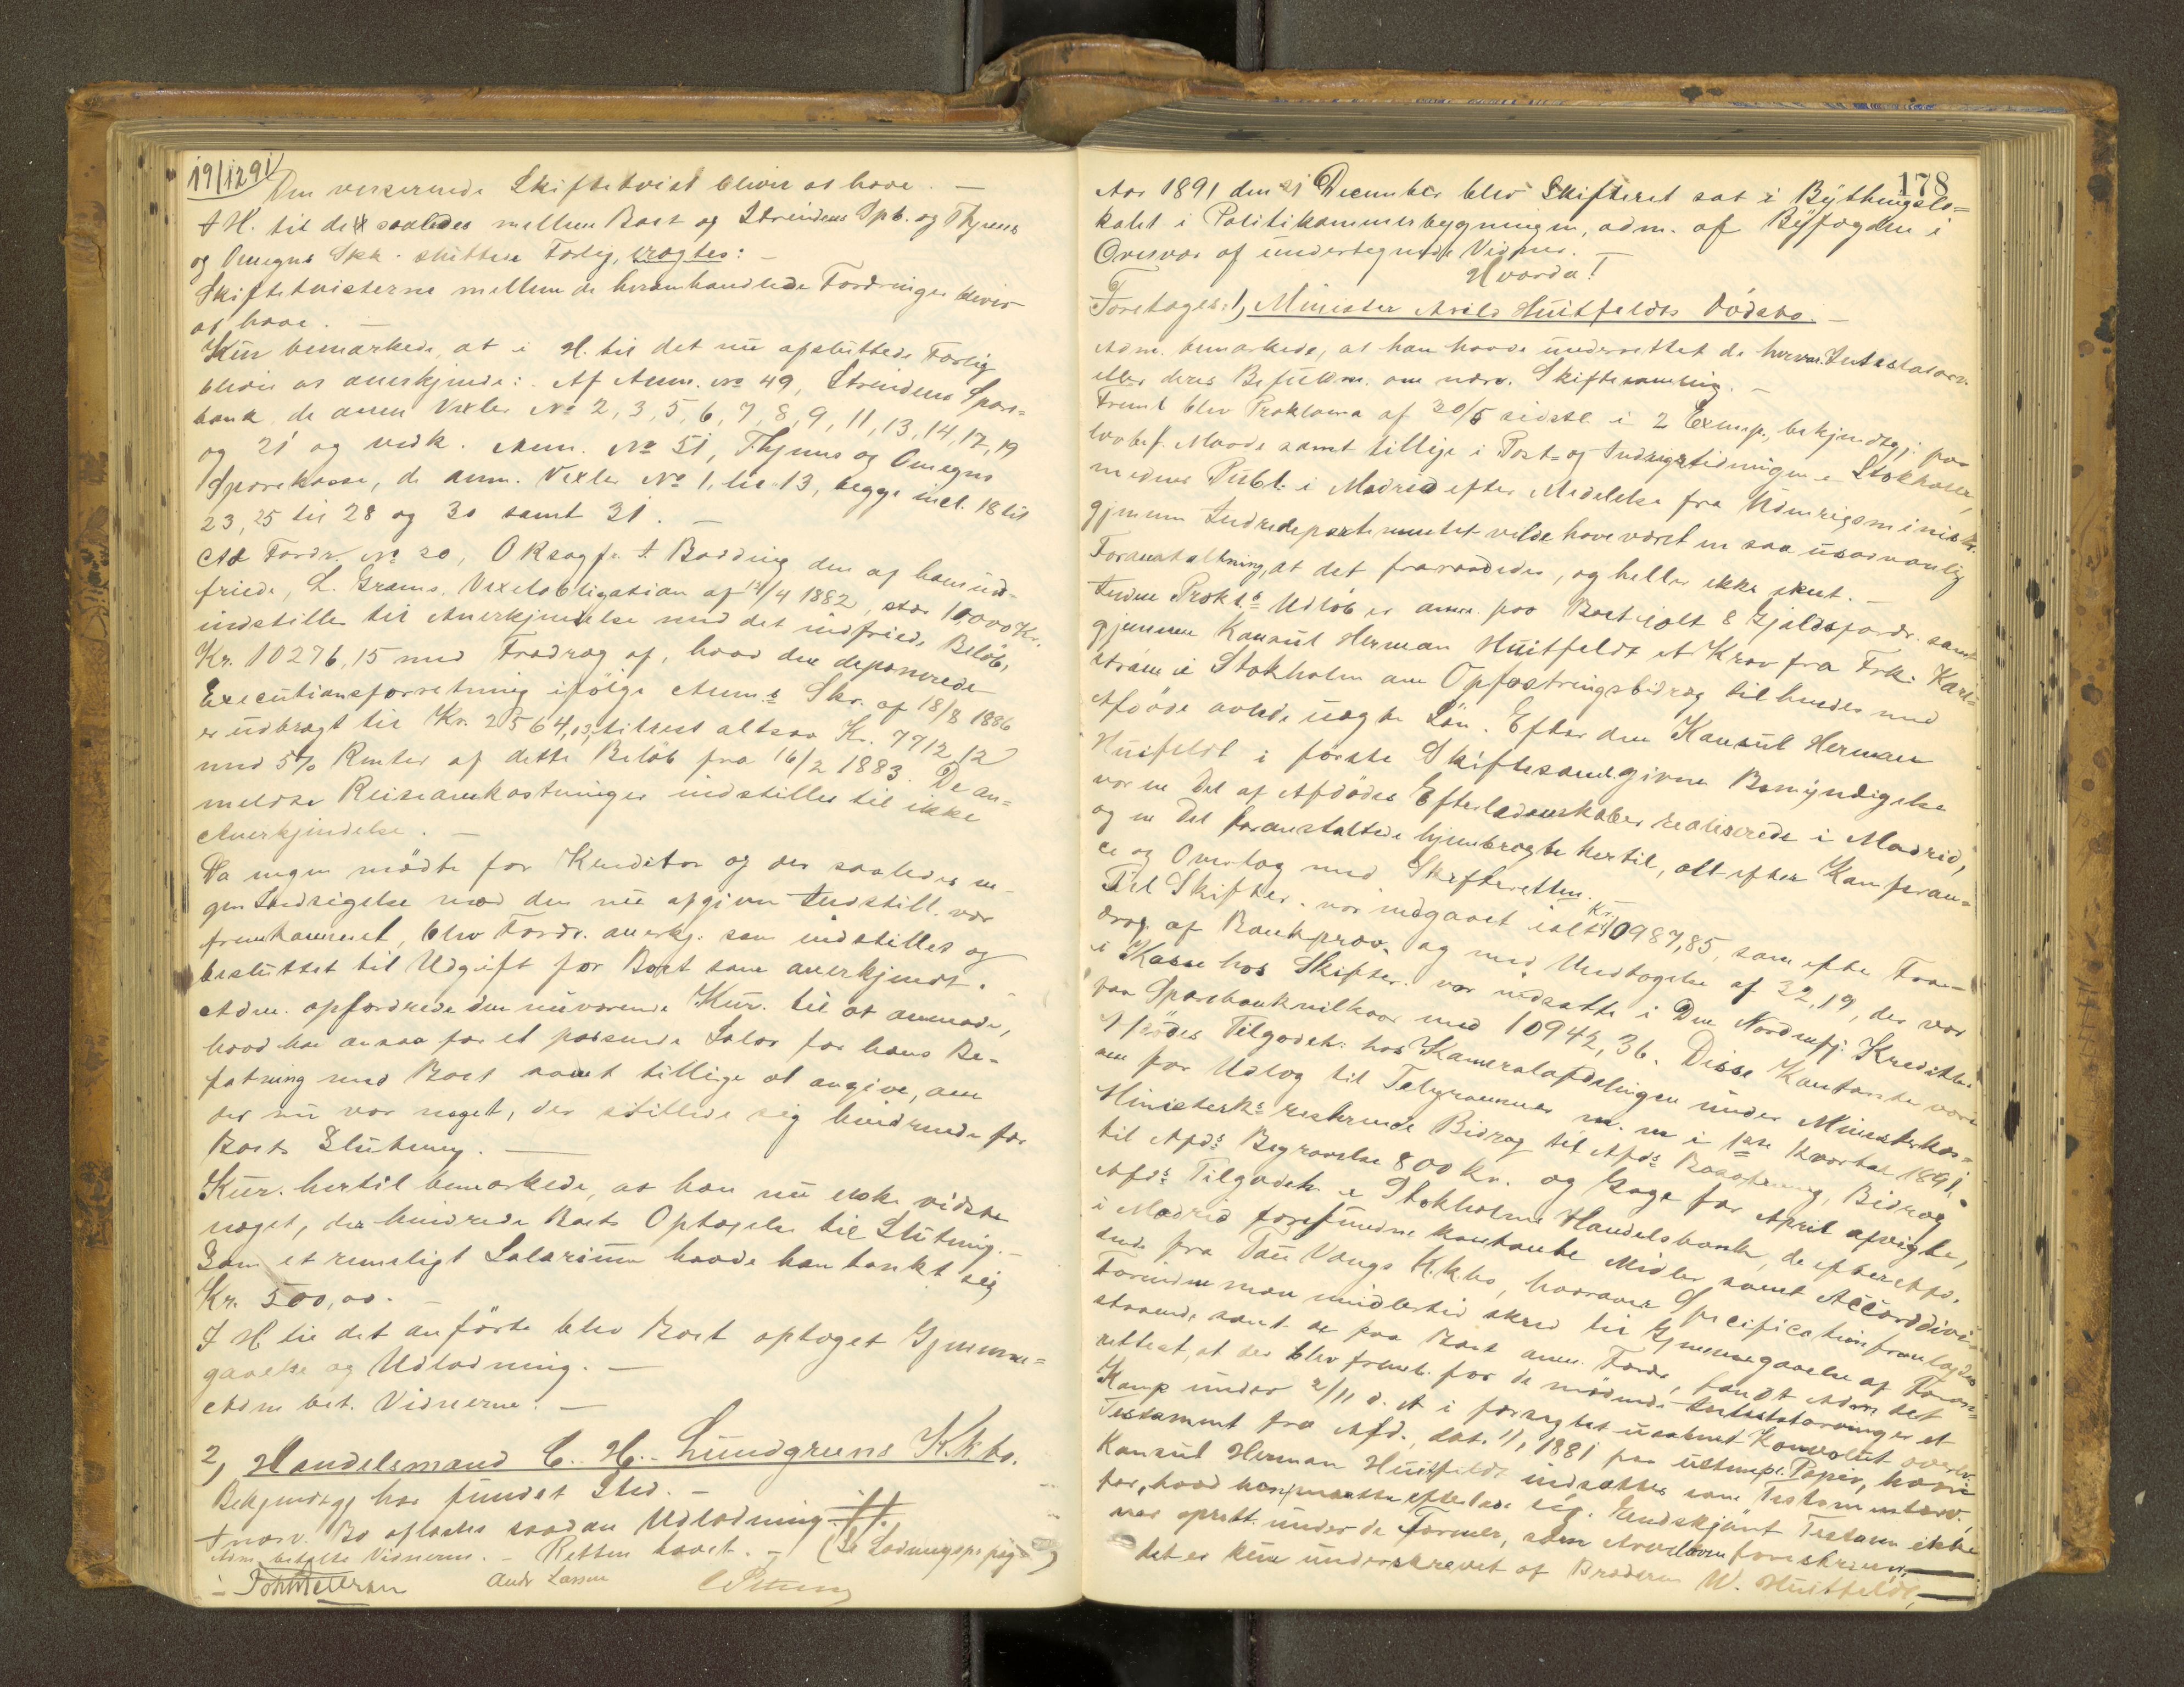 19/12 91
Den verserende Skiftetvist bliver at hæve. —
I H. til det saaledes mellem Boet og Strindens Spb. og Thyens
og Omegns Spk. sluttede Forlig, eragtes: —
Skiftetvisterne mellem de herom handlede Fordringer bliver
at hæve. —
Kur. bemærkede, at i H. til det nu afsluttede Forlig
bliver at anerkjende: Af Anm. No 49, Strindens Spare=
bank, de anm. Vexler No 2, 3, 5, 6, 7, 8, 9, 11, 13, 14, 17, 19
og 21 og vedk. Anm. No 51, Thyens og Omegns
Sparekasse, de anm. Vexler No 1 til 13, begge incl. 18 til
23, 25 til 28 og 30 samt 31. —
Ad Fordr. No 20, O Ksagf. I. Bødding den af ham ind-
friede, L. Grams, Vexelobligation af 14/4 1882, stor 10,000 Kr.
indstilles til Anerkjendelse med det indfriede Beløb,
Kr. 10276,15 med Fradrag af, hvad den deponerede
Executionsforretning ifölge Anm.s Skr. af 18/8 1886
er udbragt til Kr. 2564,03, tilrest altsaa Kr. 7712,12
med 5% Renter af dette Beløb fra 16/2 1883. De an=
meldte Reiseomkostninger indstilles til ikke
Anerkjendelse. —
Da ingen mödte for Kreditor og der saaledes in-
gen Indsigelse mod den nu afgivne Indstill. var
fremkommet, blev Fordr. anerkj. som indstillet og
besluttet til Udgift for Boet som anerkjendt. —
Adm. opfordrede den nuværende Kur. til at anmode,
hvad han ansaa for et passende Salær for hans Be=
fatning med Boet samt tillige at angive, om
der nu var noget, der stillede sig hindrende for
Boets Slutning. —
Kur. hertil bemærkede, at han nu ikke vidste
noget, der hindrede Boets Optagelse til Slutning. —
Som et rimeligt Salarium havde han tænkt sig
Kr. 500,00. —
I H. til det anförte blev Boet optaget Gjennem=
gaaelse og Udlodning. —
Adm bet. Vidnerne. —
2, Handelsmand C. H. Lundgreens K.k.bo.
Bekjendtgj. har fundet Sted. —
I nærv. Bo afsattes saadan Udlodning: #
Adm. betalte Vidnerne. — Retten hævet. — (Se Lodningsp. pag )
Joh Petersen Andr Larsen
178
Aar 1891 den 21 December blev Skifteret sat i Bythingslo=
kalet i Politikammerbygningen, adm. af Byfogden i
Overvær af undertegnede Vidner. —
Hvorda!
Foretages: 1, Minister Arild Huitfeldts Dödsbo. —
Adm. bemærkede, at han havde underrettet de herv. Intestatarv.
eller deres Befuldm. om nærv. Skiftesamling. —
Freml blev Proklama af 30/5 sidstl. i 2 Exemp., bekjendtgj. paa
lovbef. Maade samt tillige i Post- og Inrikestidningen i Stokholm,
medens Publ. i Madrid efter Meddelelse fra Udenrigsministr.
gjennem Indredepartementet vilde have været en saa usædvanlig
Foranstaltning, at det fraraadedes, og heller ikke skeet. —
Inden Prokl.s Udløb er anm. paa Boet ialt 8 Gjældsfordr. samt
gjennem Konsul Herman Huitfeldt et Krav fra Frk. Karl=
ström i Stokholm om Opfostringsbidrag til hendes med
Afdöde avlede uægte Sön. Efter den Konsul Herman
Huitfeldt i förste Skiftesaml. givne Bemyndigelse
var en Del af Afdödes Efterladenskaber realiserede i Madrid,
og en Del foranstaltede hjembragte hertil, alt efter Konferan=
ce og Overlæg med Skifteretten.
Til Skifter. var indgaaet ialt Kr. 10987,85, som efter Fra-
drag af Bankprov. og med Undtagelse af 32,19, der var
i Kasse hos Skifter. var indsatte i Den Nordenfj: Kreditbk.
paa Sparebankvilkaar med 10942,36. Disse Kontanter vare
Afdödes Tilgodeh. hos Kameralafdelingen under Ministerkas=
sen for Udlæg til Telegrammer m. m i 1ste Kvartal 1891,
Ministerk.s resterende Bidrag til Afd.s Bosætning, Bidrag
til Afd.s Begravelse 800 Kr. og Gage for April afvigte,
Afd.s Tilgodeh. i Stokholms Handelsbank, de efter Afd.
i Madrid forefundne kontante Midler, samt Accorddivi=
dende fra Tau Vaugs K.k.bo, hvorover Specification fremlagdes
Forinden man imidlertid skred til Gjennemgaaelse af Foran=
staaende samt de paa Boet anm. Fordr., fandt Adm. det
rettest, at der blev freml. for de mødende Intestatarvinger et
Konp under 2/11 d. A i forseglet uaabnet Konvolut overlev.
Testament fra Afd., dat. 1/1 1881 paa ustempl. Papir, hvori
Konsul Herman Huitfeldt indsættes som Testamentarv.
for, hvad han maatte efterlade sig. Endskjönt Testam ikke
var oprett. under de Former, som Arveloven foreskriver, —
det er kun underskrevet af Broderen W. Huitfeldt, —